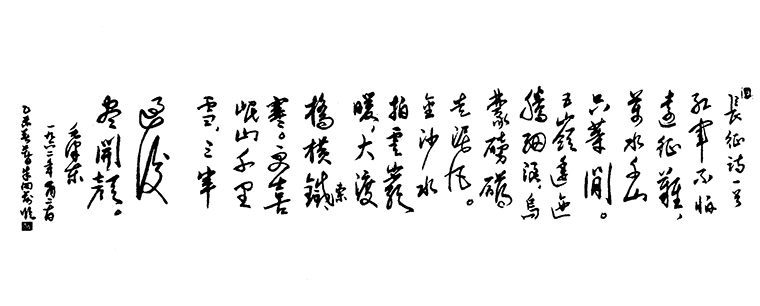 長征詩一首
紅軍不怕
遠征難，
萬水千山
只等閒。
五嶺逶迤
騰細浪，烏
蒙磅礴
走泥丸。
金沙水
拍雲巖
暖，大渡
橋橫鐵索
寒。更喜
岷山千里
雪，三軍
過後
盡開顏。
毛澤東
一九六二年